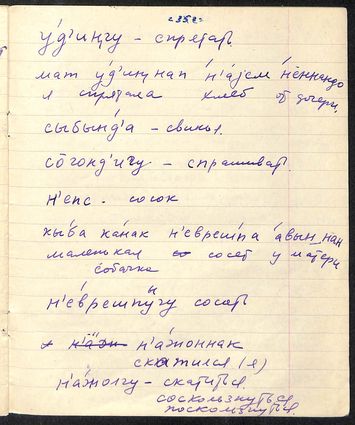 -358-
ýд'иңгу – спрятать
мат ýд'иңнап н'áјем н'éннандо
я спрятала хлеб от дочери.
сыбын́д'а – свинья.
сōгонд'игу – спрашивать.
н'епс. сосок
кы́ба кáнак н'éврешпа áвын_нан
маленькая сосет у матери
собачка
н'éврешпыгу сосать
н'áжоннак
скатился (я)
н'áжолгу – скатиться
соскользнуться
поскользнуться.